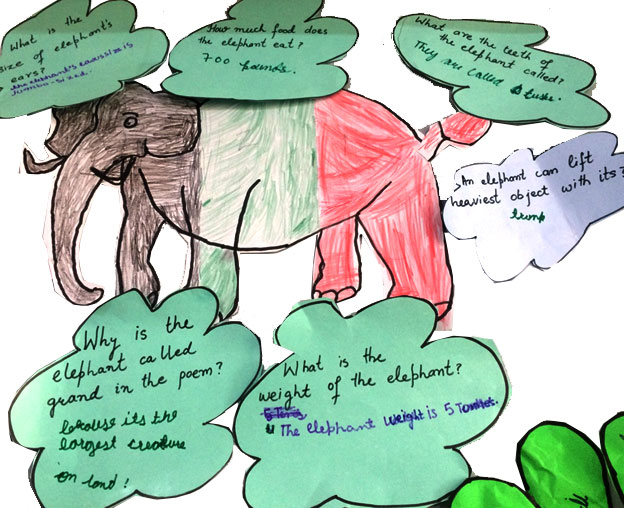 What is the
size of elephant's
ears?
the elephant's ears size is
Jumbo-sized.
How much food does
the elephant eat?
700 pounds.
What are the teeth of
the elephant called?
They are called tusks.
An elephant can lift
heaviest object with its?
trunk
Why is the
elephant called
grand in the poem?
because its the
largest creature
on land!
What is the
weight of the elephant?
5 Tons
The elephant weight is 5 Tonnes.